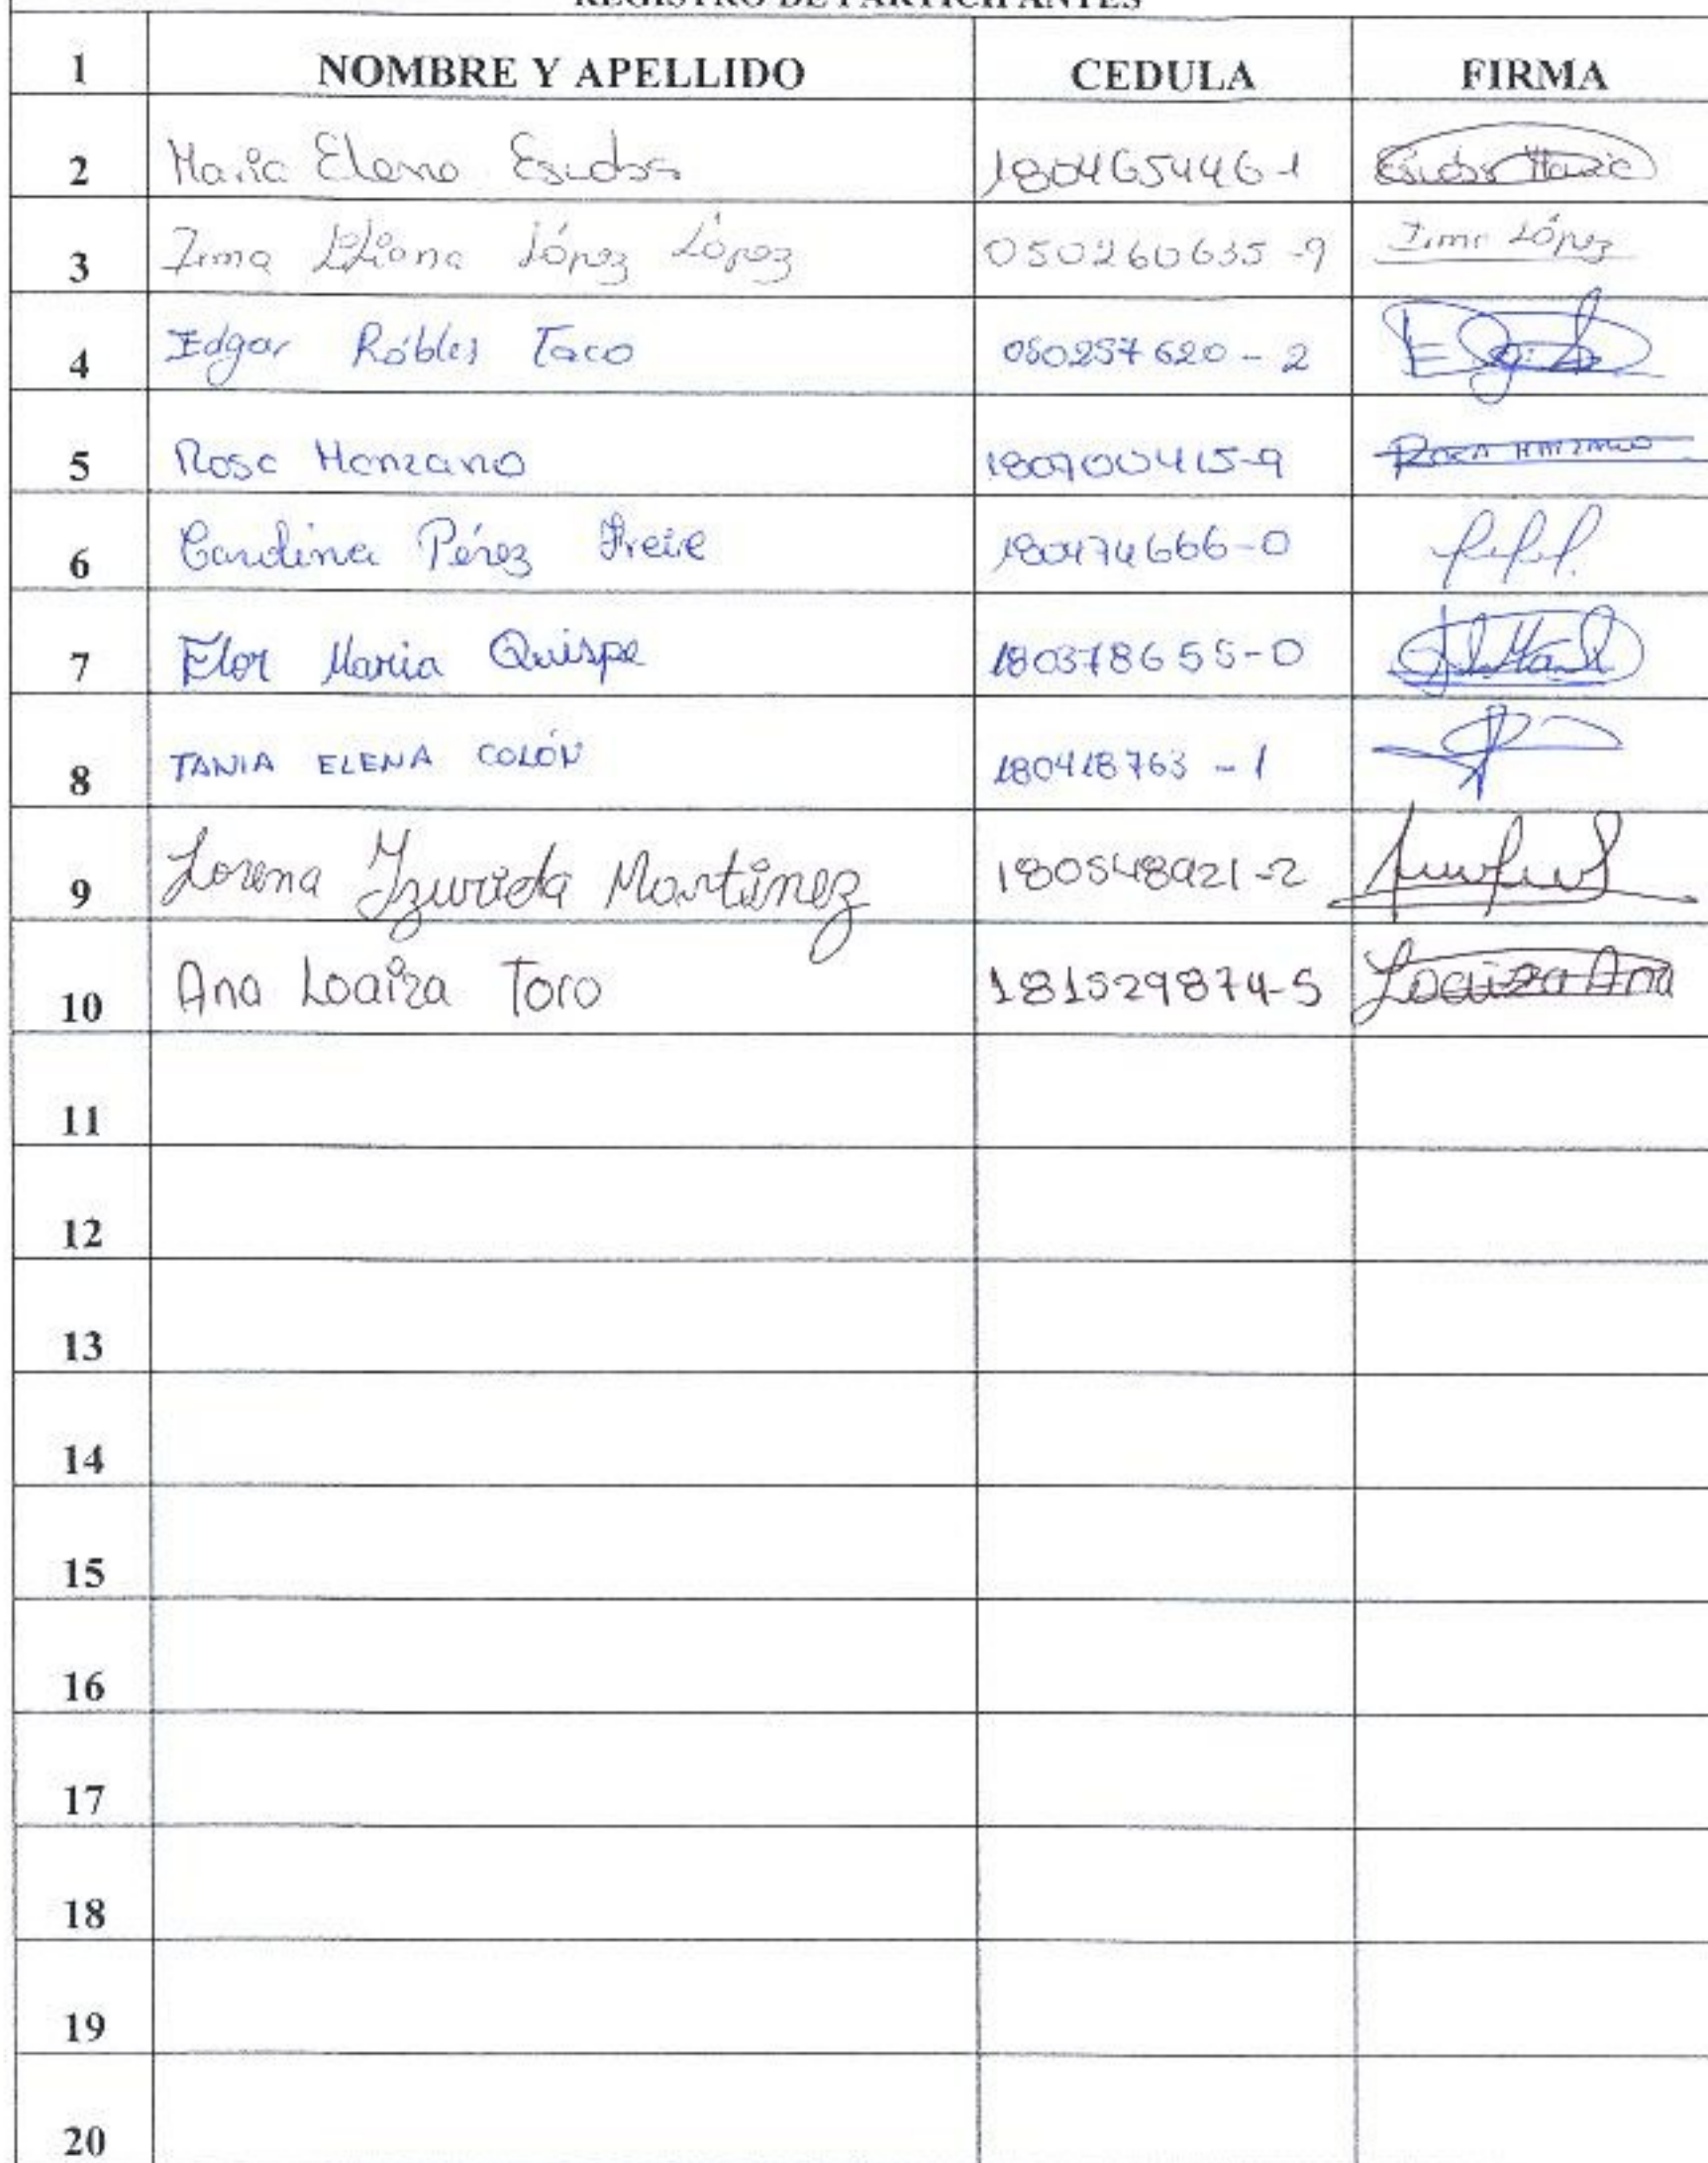 REGISTRO DE PARTICIPANTES
1 NOMBRE Y APELLIDO CEDULA FIRMA
2 Maria Elena 180465446-1
3 Irma Liliana López López 050260635-9 Irma López
4 Edgar Robles Taco 050257620-2
5 Rosa Manzano 180900415-9 ROSA MANZANO
6 Carolina Pérez Freire 180474666-0
7 Flor Maria Quispe 180378655-0
8 TANIA ELENA COLÓN 180418763-1
9 Lorena Izurieta Martínez 180548921-2
10 Ana Loaiza Toro 181529874-5 Loaiza Ana
11
12
13
14
15
16
17
18
19
20